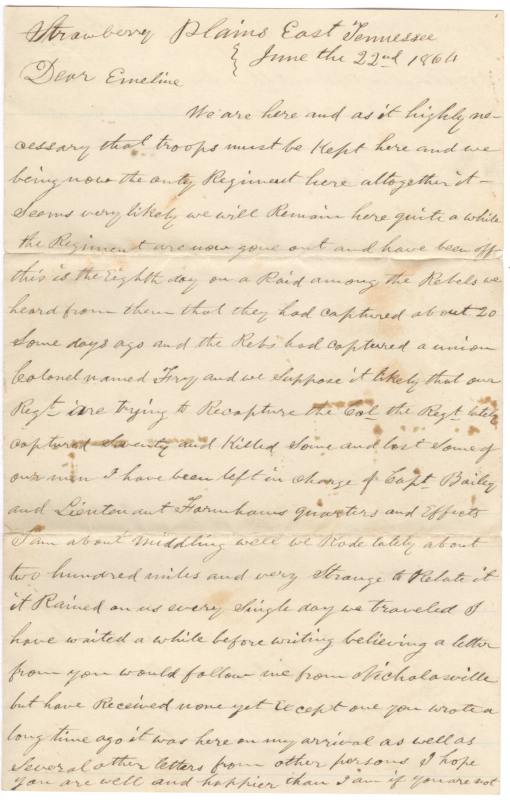 Strawberry Plains East Tennessee
June the 22nd 1864
Dear Emeline
We are here and as it highly ne-
cessary that troops must be Kept here and we
being now the only Regiment here altogether it-
Seems very likely we will Remain here quite a while
the Regiment are now gone out and have been off
this is the Eighth day on a Raid among the Rebels we
heard from them that they had captured about 20
Some days ago and the Rebs had captured a union
Colonel named Fry and we Suppose it likely that our
Regt are trying to Recapture the Col the Regt lately
captured Seventy and Killed Some and lost Some of
our men I have been left in charge of Capt Bailey
and Lieutenant Farnhams quarters and Effects
I am about middling well we Rode lately about
two hundred miles and very Strange to Relate it
it Rained on us every Single day we traveled I
have waited a while before writing believing a letter
from you would follow me from Nicholasville
but have Received none yet Except one you wrote a
long time ago it was here on my arrival as well as
Several other letters from other persons I hope
you are well and happier than I am if you are not